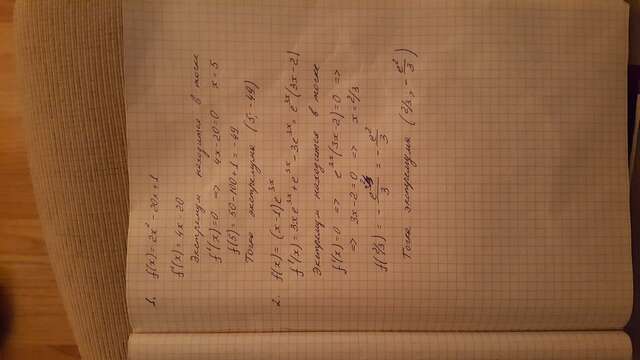 1. f(x) = 2x² - 20x + 1
f'(x) = 4x - 20
Экстремум находится в точке
f'(x) = 0 => 4x - 20 = 0 x = 5
f(5) = 50 - 100 + 1 = -49
Точка экстремума (5, -49)
2. f(x) = (x - 1) e^{3x}
f'(x) = 3x e^{3x} + e^{3x} - 3e^{3x} = e^{3x} (3x - 2)
Экстремум находится в точке
f'(x) = 0 => e^{3x} (3x - 2) = 0 =>
=> 3x - 2 = 0 => x = 2/3
f(2/3) = - e²/3 = - e²/3
Точка экстремума (2/3, - e²/3)